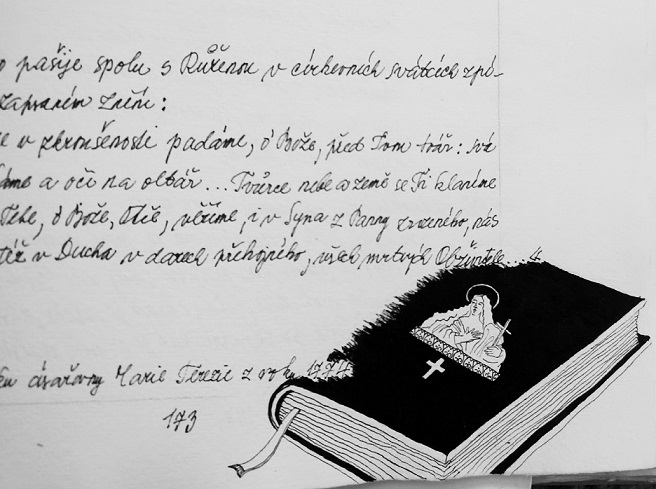 o pašije spolu s Růženou v církevních svátcích zpí-
zapsaném znění:
e v zkroušenosti padáme, ó Bože, před Tvou tvář: své
áme a oči na oltář... Tvůrce nebe a země se Ti klaníme
Tebe, ó Bože, Otče, věříme, i v Syna z Panny zrozeného, nás
též v Ducha v darech přehojného, všech mrtvých Obživitele... 4
ku císařovny Marie Terezie z roku 1774
173